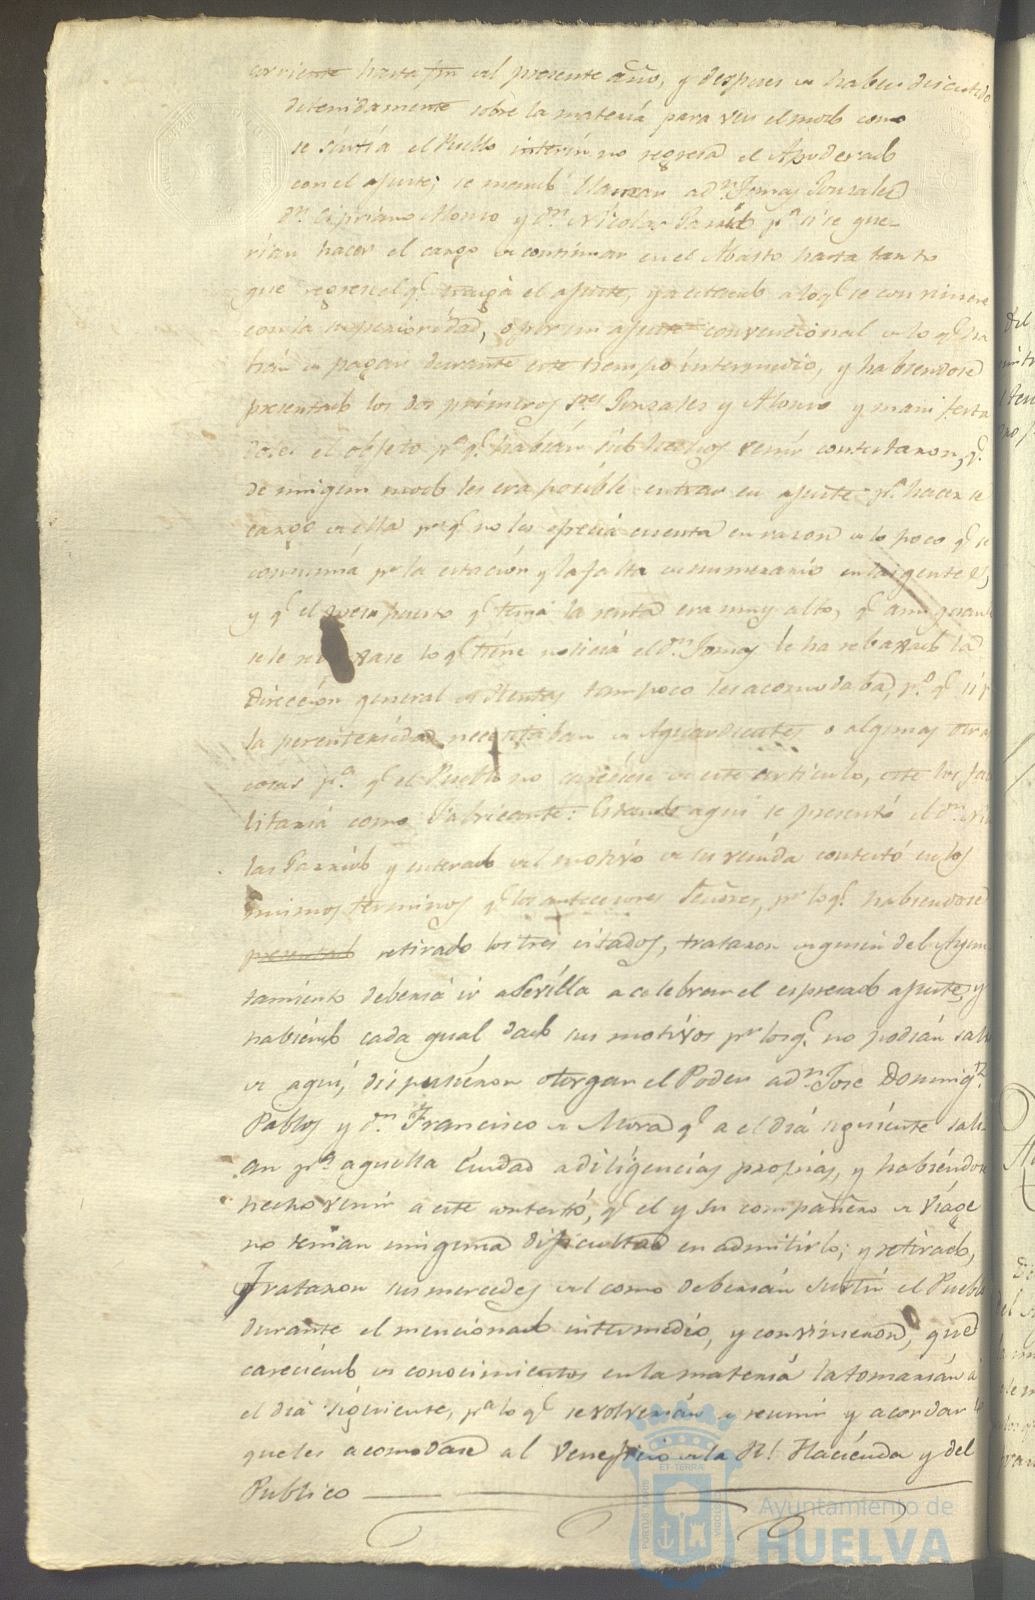 corriente hasta fin del presente año, y despues de haber discutido
detenidamente sobre la materia para ver el modo como
se surtia el Pueblo interin no regresa el Apoderado
con el ajuste; se mandó llamar a Dn. Tomas Gonzales
Dn. Cipriano Alonso y Dn. Nicolas Garrido pa. si se que-
rian hacer el cargo de continuar en el Abasto hasta tanto
que regrese el q.e traiga el ajuste, ya
con la superioridad, o por un ajuste convencional de lo q.e ha
brán de pagar durante este tiempo intermedio, y habiendose
presentado los dos primeros Sres. Gonzales y Alonso y manifesta
doles el objeto pa. q.e habian sido hechos venir contestaron, q.e
de ningun modo les era posible entrar en ajuste pa. hacerse
cargo de ella pr. q.e no les ofrecia cuenta en razon de lo poco q.e se
consumia pr. la estacion y la falta de numerario en las gentes,
y q.e el presupuesto q.e tenia la renta era muy alto, q.e aun quando
se le rebaxase lo q.e tiene noticia el Dn. Tomas le ha rebaxado la
Direccion general de Rentas tampoco les acomodaba, pr. q.e si pr.
la perentoriedad necesitaban de Aguardientes o algunas otras
cosas pa. q.e el Pueblo no careciese de este articulo, este los faci
litaria como Fabricante: Estando aqui se presentó el Dn. Nico
las Garrido y enterado del motivo de su venida contestó en los
mismos terminos q.e los antecesores Señores, pr. lo q.e habiendose
presentado retirado los tres citados, trataron de quien del Ayun
tamiento deberia ir a Sevilla a celebrar el espresado ajuste, y
habiendo cada qual dado sus motivos pr. los q.e no podian salir
de aqui, dispusieron otorgar el Poder a Dn. Jose Doming.z
Pablos y Dn. Francisco de Mora q.e a el dia siguiente sali
an pa. aquella Ciudad a diligencias propias, y habiendo
hecho venir a este contestó, q.e el y su compañero de viage
no tenian ninguna dificultad en admitirlo; y retirado,
Trataron sus mercedes del como deberian surtir el Pueblo
durante el mencionado intermedio, y convinieron, que
careciendo de conocimientos en la materia la tomarian a
el dia siguiente, pa. lo q.e se volverian a reunir y acordar lo
que les acomodase al veneficio de la Rl. Hacienda y del
Publico
Ayuntamiento de
HUELVA